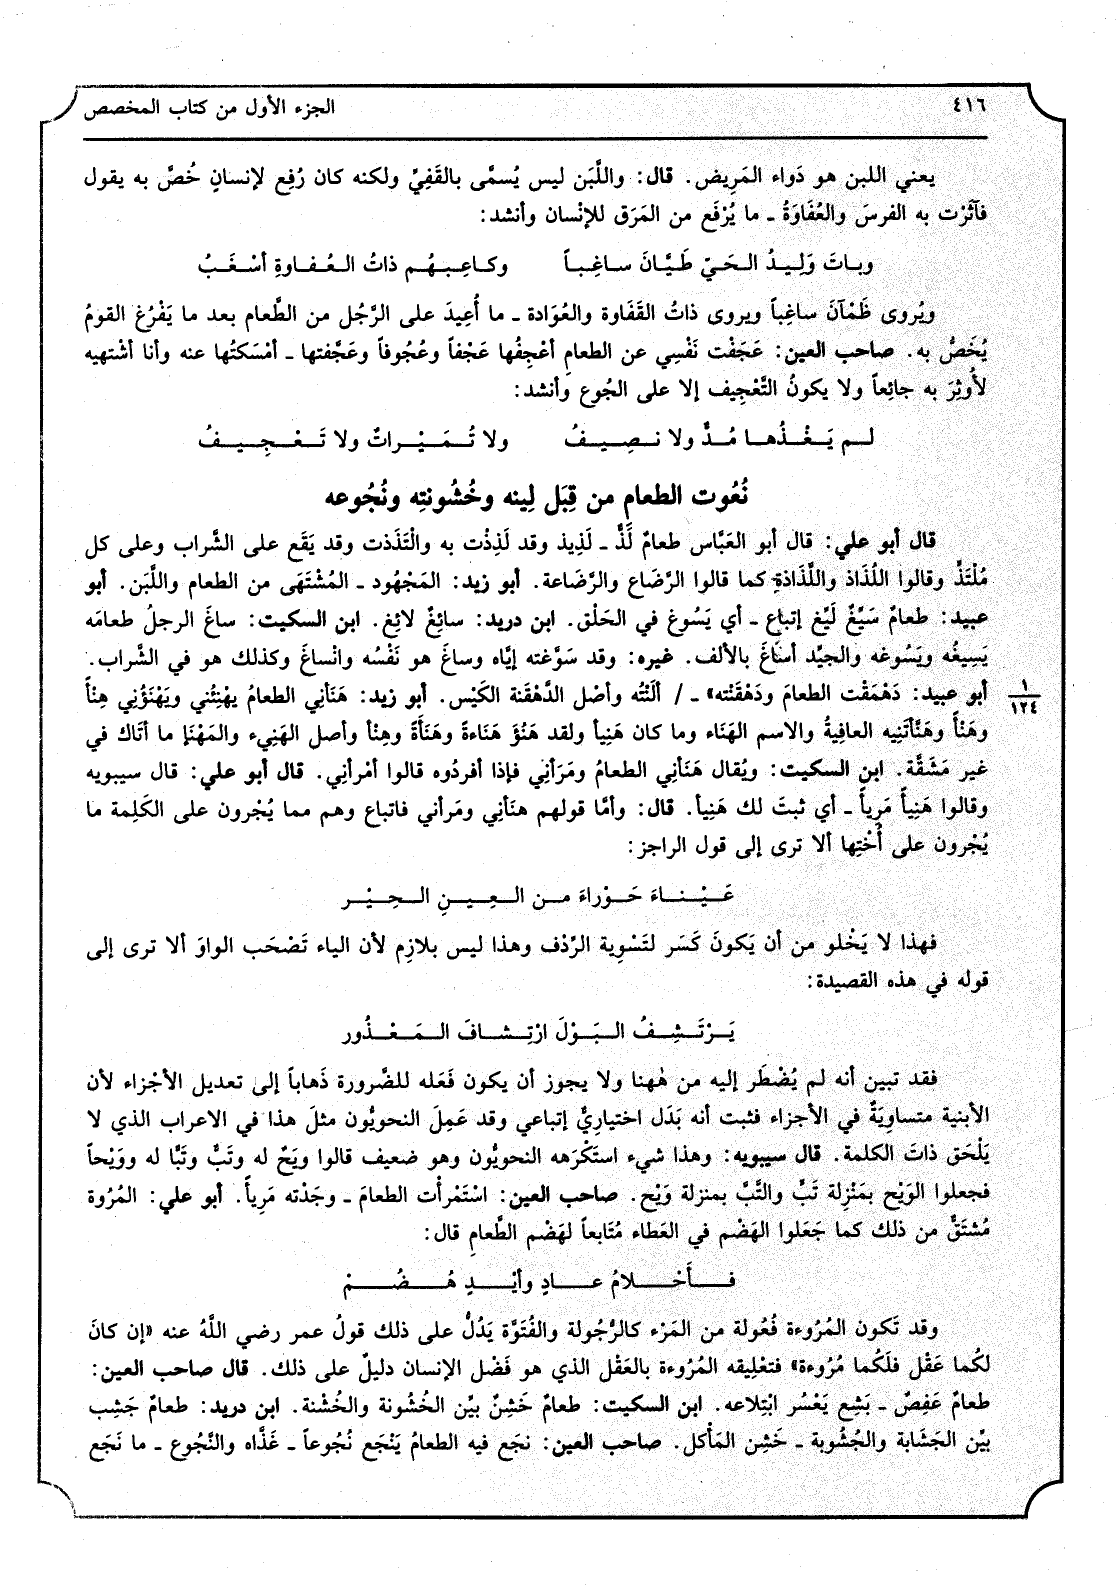 ٤١٦ الجزء الأول من كتاب المخصص
يعني اللبن هو دَواء المَرِيض. قال: واللَّبَن ليس يُسمَّى بالقَفِيِّ ولكنه كان رُفِع لإنسانٍ خُصَّ به يقول
فآثَرْت به الفرسَ والعُفَاوَةُ ـ ما يُرْفَع من المَرَق للإنْسان وأنشد:
وبـاتَ وَلِـيـدُ الـحَيّ طَـيَّـانَ سـاغِـبـاً وكـاعِـبـهُـم ذاتُ الـعُـفـاوةِ أسْـغَـبُ
ويُروى ظَمْآنَ ساغِباً ويروى ذاتُ القَفَاوة والعُوَادة ـ ما أُعِيدَ على الرَّجُل من الطَّعام بعد ما يَفْرُغ القومُ
يُخَصُّ به. صاحب العين: عَجَفْت نَفْسِي عن الطعامِ أعْجِفُها عَجْفاً وعُجُوفاً وعَجَّفتها ـ أمْسَكتُها عنه وأنا أشْتهيه
لأُوثِرَ به جائِعاً ولا يكونُ التَّعْجِيف إلا على الجُوع وأنشد:
لـم يَـغْـذُهـا مُـدٌّ ولا نـصِـيـفُ ولا تُـمَـيْـراتٌ ولا تَـعْـجِـيـفُ
نُعُوت الطعام من قِبَل لِينه وخُشُونتِه ونُجُوعه
قال أبو علي: قال أبو العَبَّاس طعامٌ لَذٌّ ـ لَذِيذ وقد لَذِذْت به والْتَذَذت وقد يَقَع على الشَّراب وعلى كل
مُلْتَذٍّ وقالوا اللَّذَاذ واللَّذَاذة كما قالوا الرَّضَاع والرَّضَاعة. أبو زيد: المَجْهُود ـ المُشْتَهَى من الطعام واللَّبَن. أبو
عبيد: طعامٌ سَيِّغٌ لَيِّغ إتباع ـ أي يَسُوغ في الحَلْق. ابن دريد: سائِغٌ لائِغ. ابن السكيت: ساغَ الرجلُ طعامَه
يَسِيغُه ويَسُوغه والجيِّد أسَاغَ بالألف. غيره: وقد سَوَّغته إيَّاه وساغَ هو نَفْسُه وانْساغَ وكذلك هو في الشَّراب.
أبو عبيد: دَهْمَقْت الطعامَ ودَهْقَنْته» ـ / ألَنْتُه وأصْل الدَّهْقَنة الكَيْس. أبو زيد: هَنَأني الطعامُ يهْنِئُني ويَهْنَؤُني هِنْأً
١
١٢٤
وهَنْأً وهَنَّأتَنِيه العافِيةُ والاسم الهَنَاء وما كان هَنِيأ ولقد هَنُؤَ هَنَاءةً وهَنَأَةً وهِنْأ وأصل الهَنِيء والمَهْنَإ ما أتَاك في
غير مَشَقَّة. ابن السكيت: ويُقال هَنَأني الطعامُ ومَرَأني فإذا أفردُوه قالوا أمْرأني. قال أبو علي: قال سيبويه
وقالوا هَنِيأً مَرِيأً ـ أي ثبتَ لك هَنِيأ. قال: وأمَّا قولهم هنَأني ومَرأني فاتباع وهم مما يُجْرون على الكَلِمة ما
يُجْرون على أُخْتِها ألا ترى إلى قول الراجز:
عَـيْـنـاءَ حَـوْراءَ مـن الـعِـيـنِ الـحِـيْـر
فهذا لا يَخْلو من أن يَكونَ كَسَر لتَسْوِية الرِّدْف وهذا ليس بلازِم لأن الياء تَصْحَب الواوَ ألا ترى إلى
قوله في هذه القصيدة:
يَـرْتَـشِـفُ الـبَـوْلَ ارْتِـشـافَ الـمَـعْـذُور
فقد تبين أنه لم يُضْطَر إليه من هٰهنا ولا يجوز أن يكون فَعَله للضَّرورة ذَهاباً إلى تعديل الأجْزاء لأن
الأبنية متساوِيَةٌ في الأجزاء فثبت أنه بَدَل اختيارِيٌّ إتباعي وقد عَمِلَ النحويُّون مثلَ هذا في الاعراب الذي لا
يَلْحَق ذاتَ الكلمة. قال سيبويه: وهذا شيء استَكْرَهه النحويُّون وهو ضعيف قالوا ويَحٌ له وتَبٌّ وتَبًّا له ووَيْحاً
فجعلوا الوَيْح بمَنْزِلة تَبٍّ والتَّبَّ بمنزلة وَيْح. صاحب العين: اسْتَمْرأْت الطعامَ ـ وجَدْته مَرِيأً. أبو علي: المُرُوة
مُشتَقٌّ من ذلك كما جَعَلوا الهَضْم في العَطاء مُتَابعاً لهَضْم الطَّعامِ قال:
فَـأَحْـلامُ عـادٍ وأيْـدٍ هُـضُـمْ
وقد تَكون المُرُوءة فُعُولة من المَرْء كالرُّجُولة والفُتَوَّة يَدُلُّ على ذلك قولُ عمر رضي اللَّهُ عنه «إن كانَ
لكُما عَقْل فلَكُما مُرُوءة» فتعْلِيقه المُرُوءة بالعَقْل الذي هو فَضْل الإنسان دليلٌ على ذلك. قال صاحب العين:
طعامٌ عَفِصٌ ـ بَشِع يَعْسُر ابْتِلاعه. ابن السكيت: طعامٌ خَشِنٌ بيِّن الخُشُونة والخُشْنة. ابن دريد: طعامٌ جَشِب
بيِّن الجَشَابة والجُشُوبة ـ خَشِن المَأكل. صاحب العين: نجَع فيه الطعامُ يَنْجَع نُجُوعاً ـ غَذَّاه والنَّجُوع ـ ما نَجَع